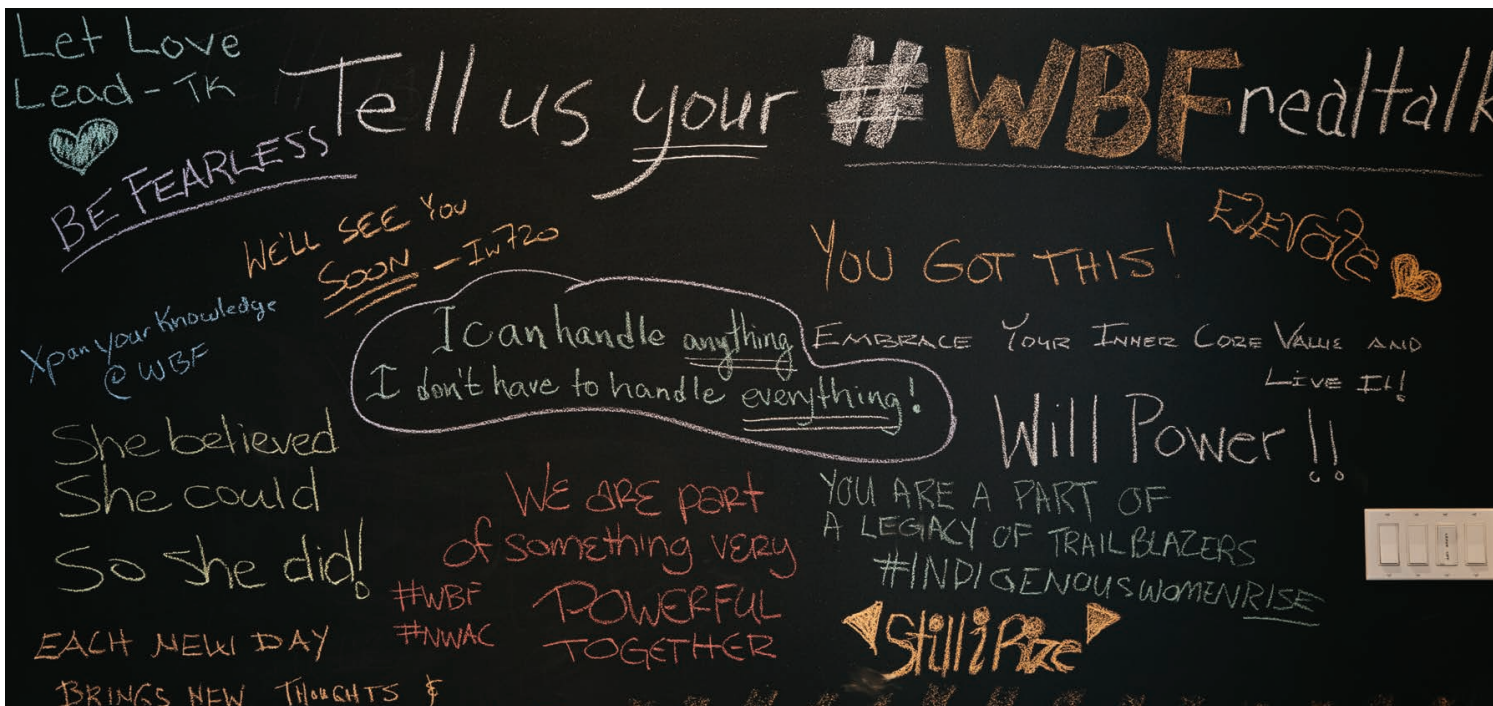 Let Love
Lead - TK
Tell us your #WBFrealtalk
BE FEARLESS
WE'LL SEE YOU
SOON - IW720
YOU GOT THIS!
ElEVatE
Xpan your Knowledge
@ WBF
I can handle anything
I don't have to handle everything!
EMBRACE YOUR INNER CORE VALUE AND
LIVE IT!
Will Power!!
She believed
She could
So she did!
WE ARE part
of something VERY
POWERFUL
TOGETHER
#WBF
#NWAC
YOU ARE A PART OF
A LEGACY OF TRAILBLAZERS
#INDIGENOUSWOMENRISE
Still i Rize
EACH NEW DAY
BRINGS NEW THOUGHTS &